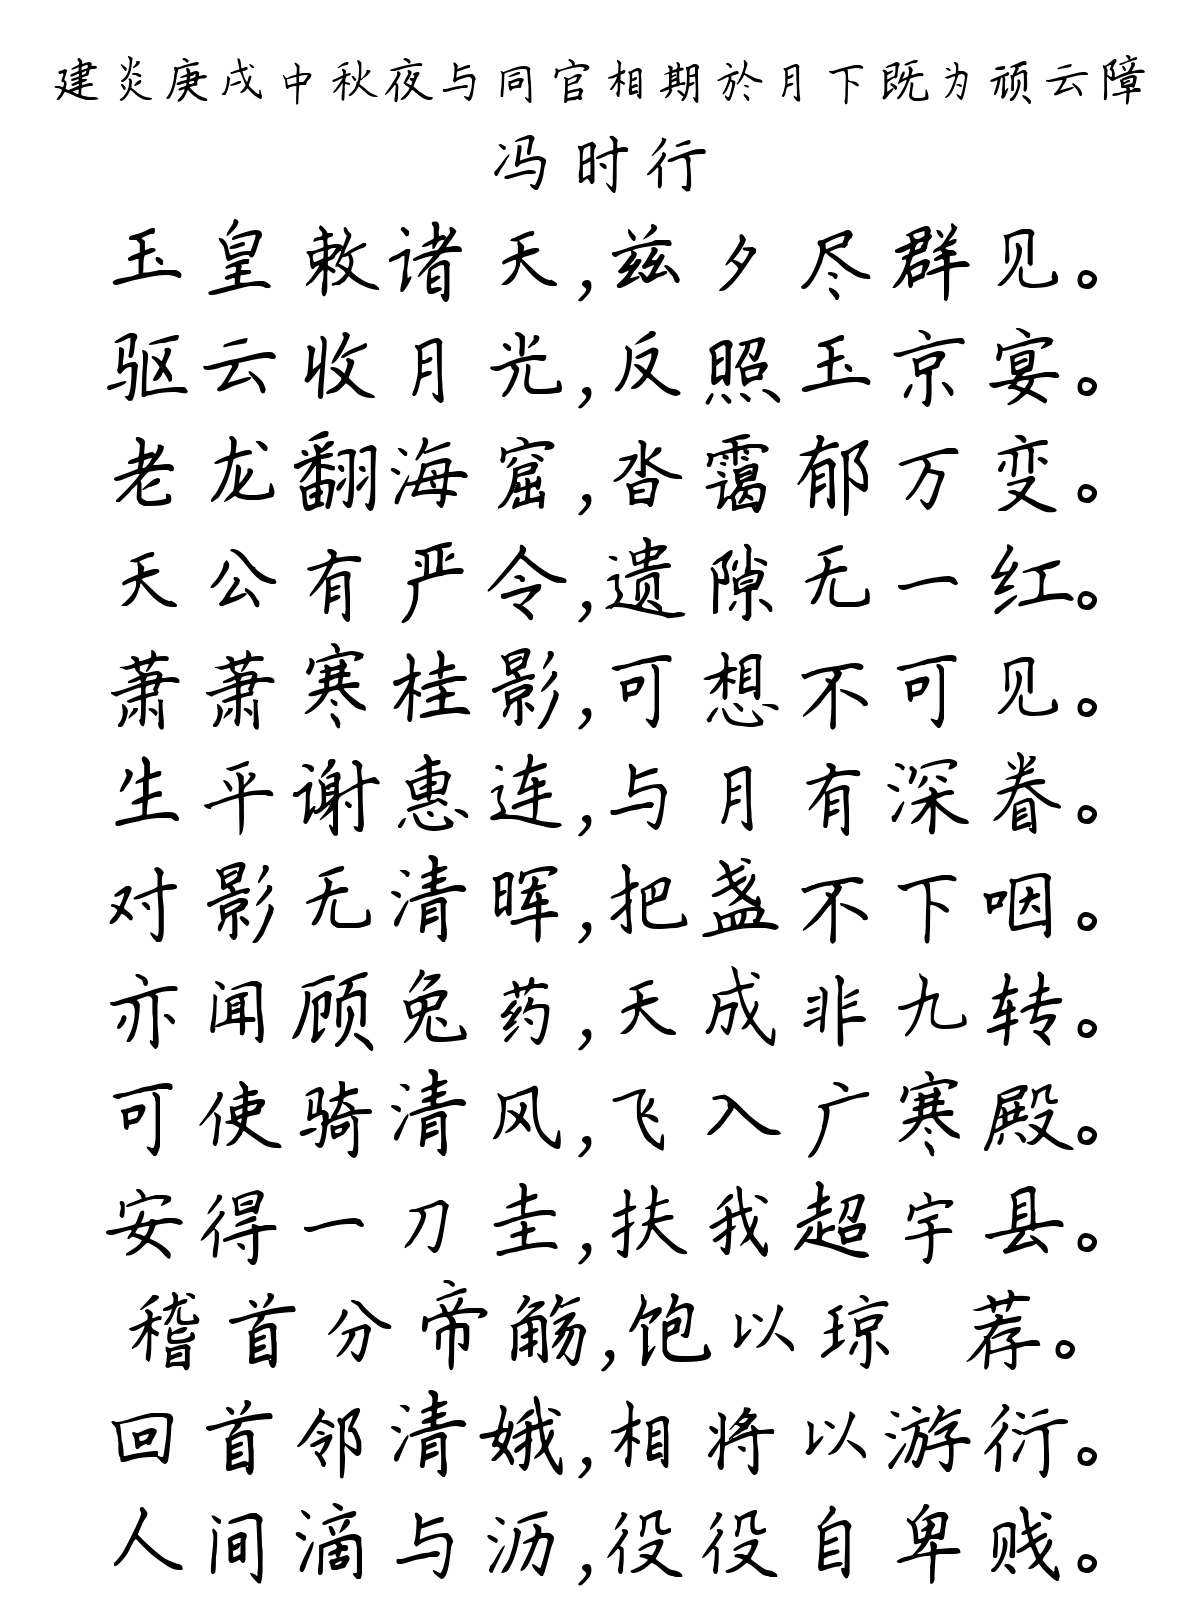 建炎庚戌中秋夜与同官相期於月下既为顽云障
冯时行
玉皇敕诸天,兹夕尽群见。
驱云收月光,反照玉京宴。
老龙翻海窟,沓霭郁万变。
天公有严令,遗隙无一红。
萧萧寒桂影,可想不可见。
生平谢惠连,与月有深眷。
对影无清晖,把盏不下咽。
亦闻顾兔药,天成非九转。
可使骑清风,飞入广寒殿。
安得一刀圭,扶我超宇县。
稽首分帝觞,饱以琼 荐。
回首邻清娥,相将以游衍。
人间滴与沥,役役自卑贱。